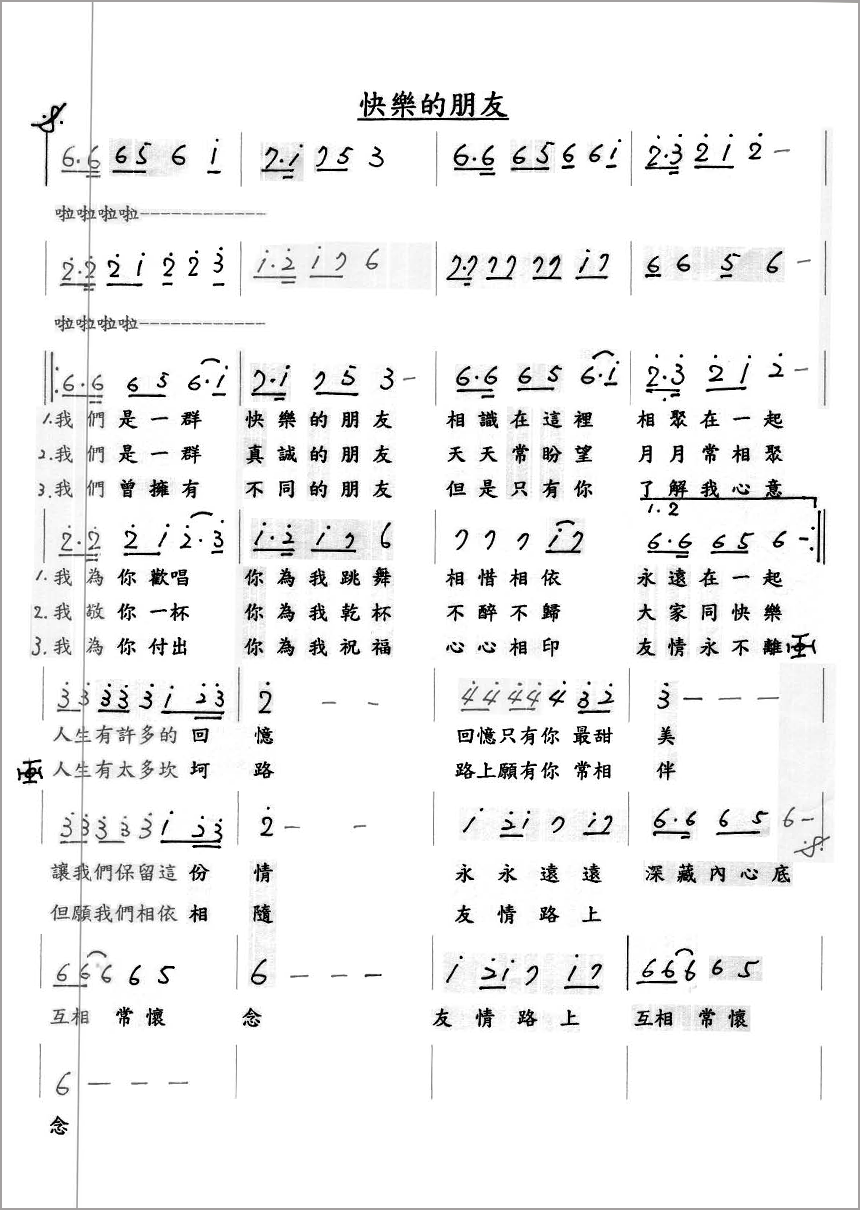 快樂的朋友
6·6 65 6 i 7·i 75 3 6·6 65 6 6i 2·3 2i 2 -
啦啦啦啦-------------
2·2 2i 2 2 3 i·2 i7 6 7·7 77 77 i7 6 6 5 6 -
啦啦啦啦-------------
6·6 65 6·i 7·i 75 3 - 6·6 65 6·i 2·3 2i 2 -
1.我們是一群 快樂的朋友 相識在這裡 相聚在一起
2.我們是一群 真誠的朋友 天天常盼望 月月常相聚
3.我們曾擁有 不同的朋友 但是只有你 了解我心意
1.2
2·2 2i 2·3 i·2 i7 6 7 7 7 i7 6·6 65 6 -
1.我為你歡唱 你為我跳舞 相惜相依 永遠在一起
2.我敬你一杯 你為我乾杯 不醉不歸 大家同快樂
3.我為你付出 你為我祝福 心心相印 友情永不離
33 33 3i 23 2 - - 44 44 4 32 3 - - -
人生有許多的回 憶 回憶只有你最甜 美
人生有太多坎坷 路 路上願有你常相 伴
33 33 3i 23 2 - - i 2i 7 i7 6·6 65 6 -
讓我們保留這份 情 永永遠遠 深藏內心底
但願我們相依相 隨 友情路上
66 6 6 5 6 - - - i 2i 7 i7 666 6 5
互相常懷 念 友情路上 互相常懷
6 - - -
念